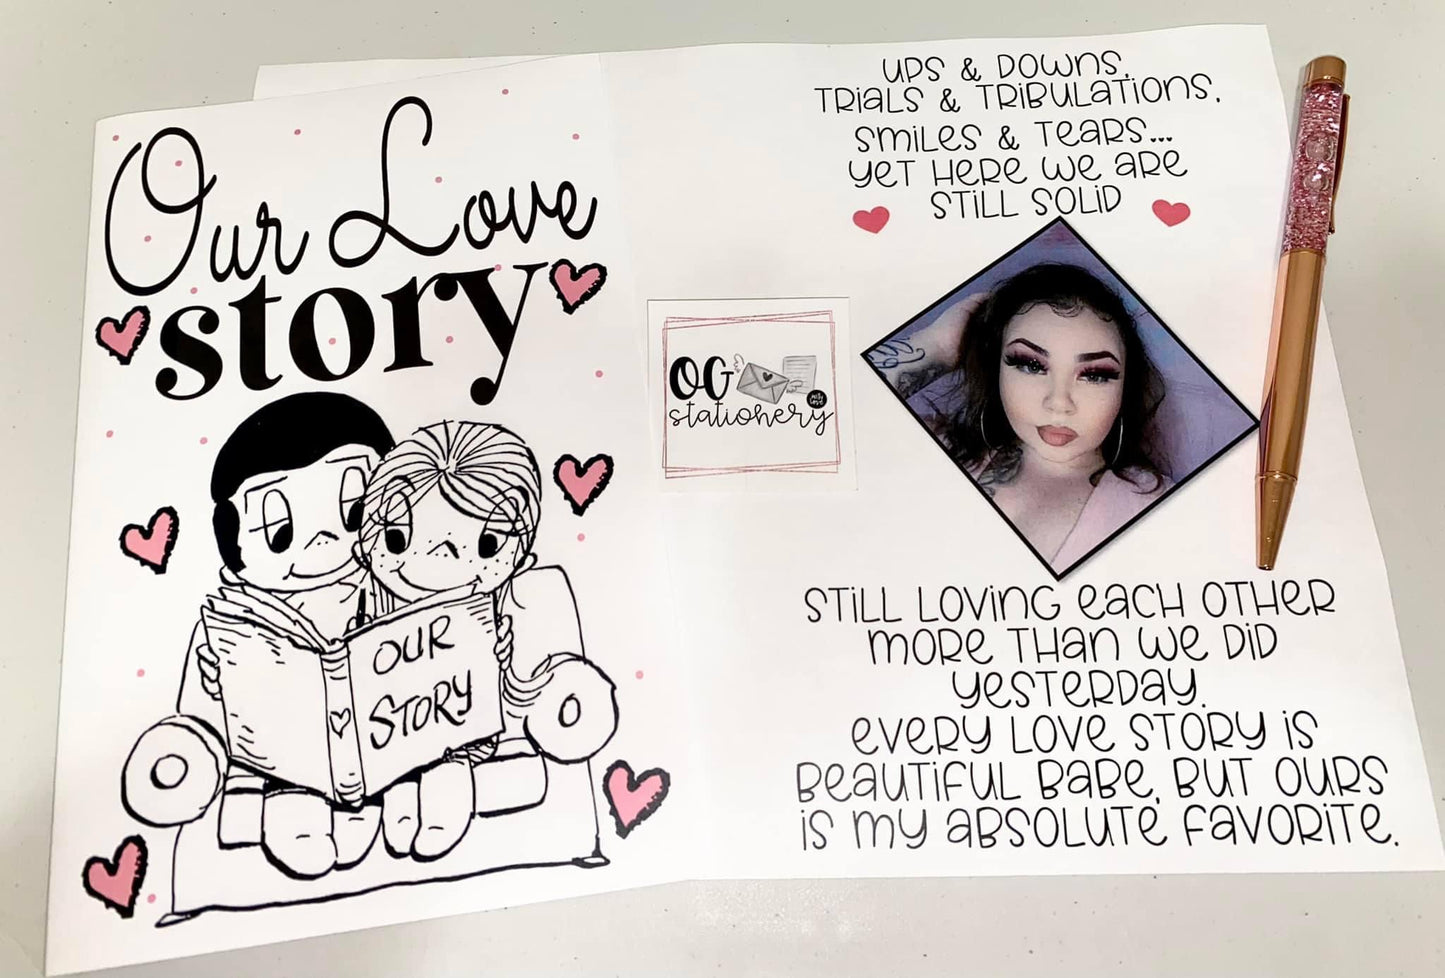 Our Love
story
OUR
STORY
OG
stationery
UPS & DOWNS,
TRIALS & TRIBULATIONS,
SMILES & TEARS...
YET HERE WE ARE
STILL SOLID
STILL LOVING EACH OTHER
MORE THAN WE DID
YESTERDAY.
EVERY LOVE STORY IS
BEAUTIFUL BABE, BUT OURS
IS MY ABSOLUTE FAVORITE.